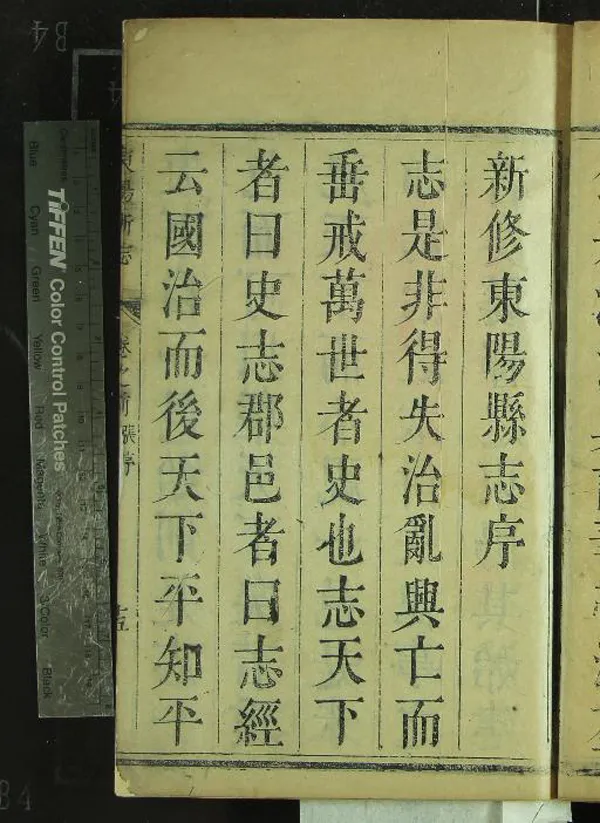 新修東陽縣志序
志是非得失治亂興亡而
垂戒萬世者史也志天下
者曰史志郡邑者曰志經
云國治而後天下平知平
東陽新志
卷之首 張序
TIFFEN Color Control Patches
Blue
Cyan
Green
Yellow
Red
Magenta
White
3/Color
Black
B4